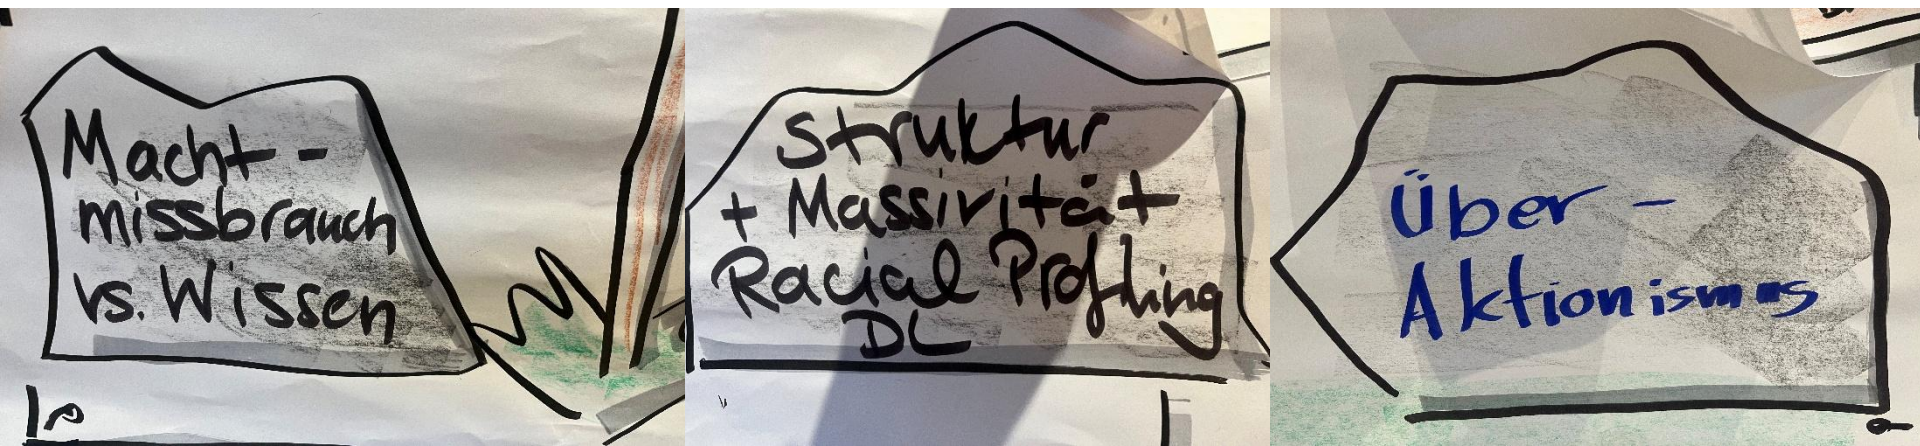 Macht-
missbrauch
vs. Wissen
Struktur
+ Massivität
Racial Profiling
DL
Über-
Aktionismus